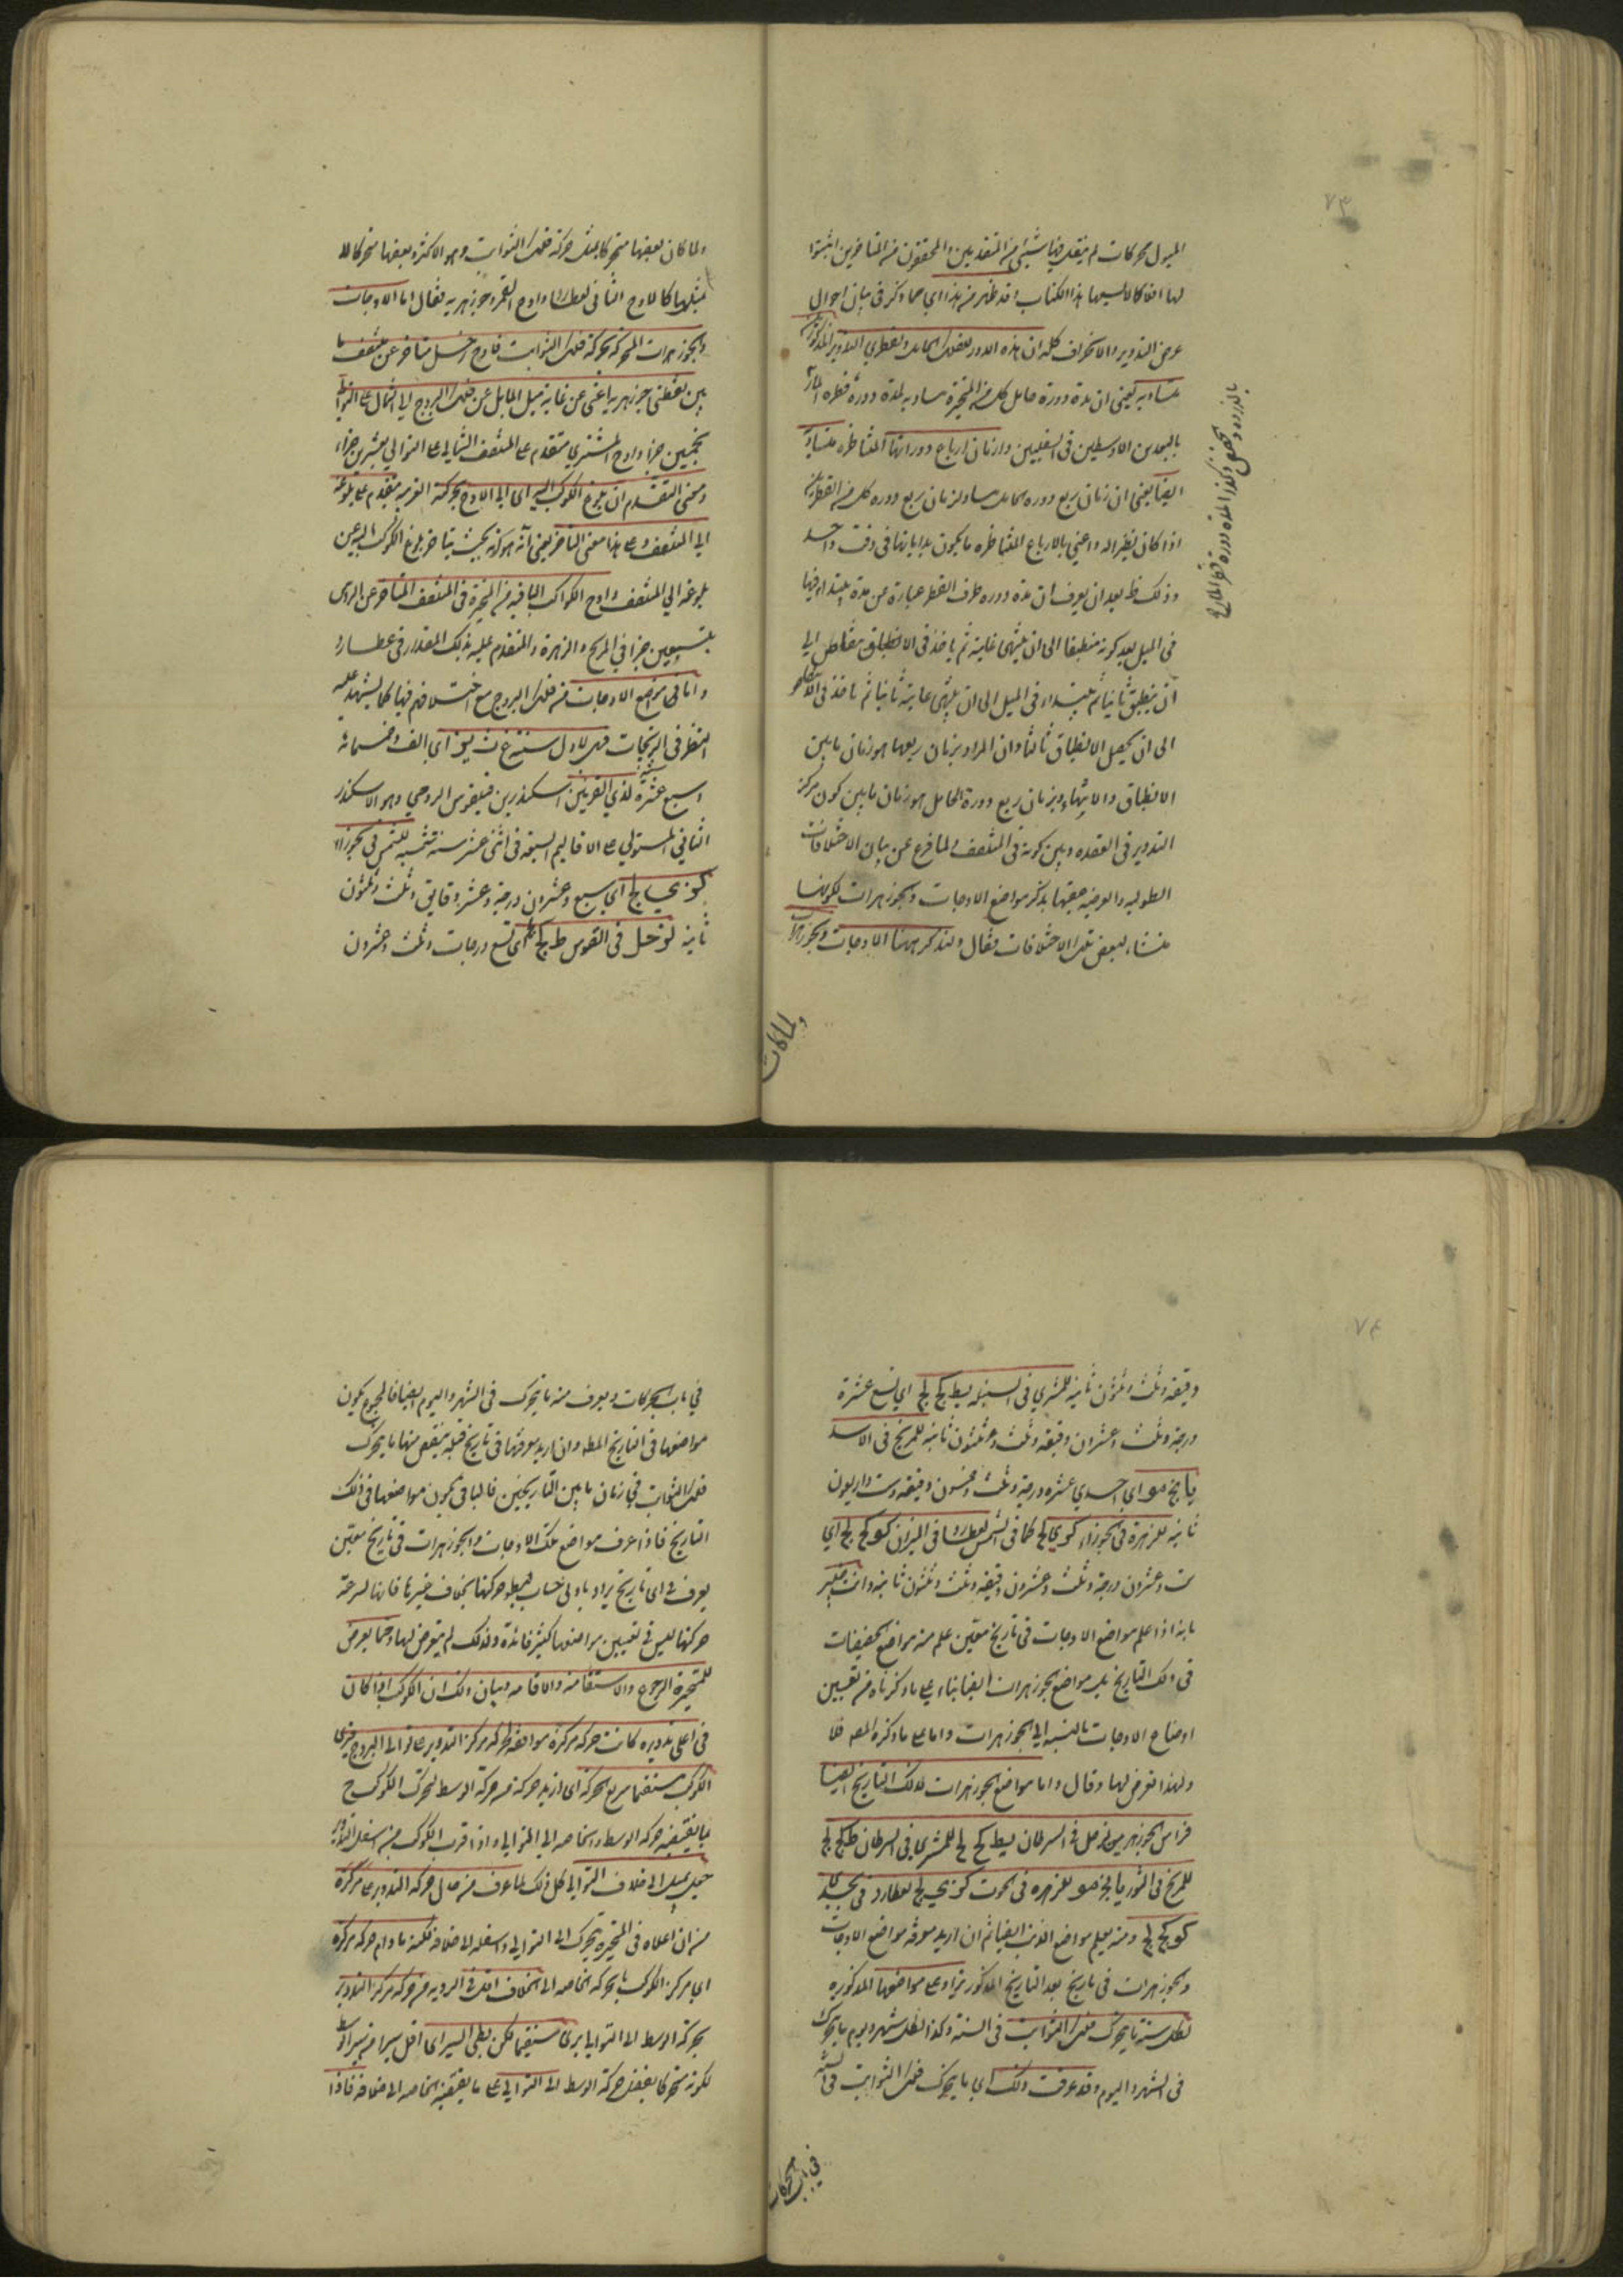 ٧٣
الميول محركات لم ينقل فيها شيئ من المتقدمين والمحققون من المتاخرين اثبتوا
لها افلاكا لا يسعها هذا الكتاب وقد ظهر من هذا اي مما ذكر في بيان احوال
عرض التدوير والانحراف كله ان هذه الادور للفلك الحامل ولقطري التدوير المذكورين
متساوية يعني ان مدة دورة حامل كل من المتحيرة مساوية لمدة دورة قطره المار
بالبعدين الاوسطين في السفليين وازمان ارباع دوراتها المتناظرة متساوية
ايضا يعني ان زمان ربع دورة الحامل مساو لزمان ربع دورة كل من القطرين
اذا كان نظيرا له واعني بالارباع المتناظرة ما يكون بداياتها في وقت واحد
وذلك ظ بعد ان يعرف ان مدة دورة طرف القطر عبارة عن مدة يبتداء فيها
في الميل بعد كونه منطبقا الى ان ينتهي غايته ثم ياخذ في الانطباق متناقصا الى
ان ينطبق ثانيا ثم يبتداء في الميل الى ان ينتهي غايته ثانيا ثم ياخذ في
الى ان يحصل الانطباق ثالثا وان المراد بزمان ربعها هو زمان ما بين
الانطباق والانتهاء وبزمان ربع دورة الحامل هو زمان ما بين كون مركز
التدوير في العقدة وبين كونه في المنتصف ولما فرغ عن بيان الاختلافات
الطولية والعرضية عقبها بذكر مواضع الاوجات والجوزهرات لكونها
منشاء لبعض تلك الاختلافات فقال ولنذكر ههنا الاوجات والجوزهرات
بالذروة والحضيض وكذا لمدة دورة قطره المار
ولما كان
ولما كان بعضها متحركا بمثل حركة فلك الثوابت وهو الاكثر وبعضها متحركا لا
بمثلها كالاوج الثاني لعطارد واوج القمر وجوزهريه فقال اما الاوجات
والجوزهرات المتحركة بحركة فلك الثوابت فاوج زحل متاخر عن منتصف ما
بين نقطتي جوزهريه اعني عن غاية ميل المايل عن فلك البروج الى الشمال على التوالي
بخمسين جزا واوج المشتري متقدم على المنتصف الشمالي على التوالي بعشرين جزاء
ومعنى التقدم ان بلوغ الكوكب اليه اي الى الاوج بحركته الغربية متقدم على بلوغه
الى المنتصف وعلى هذا معنى التاخر يعني انه هو كونه بحيث يتاخر بلوغ الكوكب اليه عن
بلوغه الى المنتصف واوج الكواكب الباقية من المتحيرة في المنتصف المتاخر عن الراس
بتسعين جزا في المريخ والزهرة والمتقدم عليه بذلك المقدار في عطارد
واما في مواضع الاوجات من فلك البروج مع اختلافهم فيها كما يشهد عليه
النظر في الزيجات فهي لاول سنة غ ث يز اي الف وخمسمائة
وسبع عشرة لذي القرنين اسكندر بن فيلقوس الرومي وهو الاسكندر
الثاني المستولي على الاقاليم السبعة في اثنى عشر سنة شمسية للشمس في الجوزاء
كز ي لج اي سبع وعشرون درجة وعشر دقايق وثلث وثلثون
ثانية لزحل في القوس ط كج لج اي تسع درجات وثلث وعشرون
٧٤
دقيقة وثلث وثلثون ثانية للمشتري في السنبلة يط كج لج اي تسع عشرة
درجة وثلث وعشرون دقيقة وثلث وثلثون ثانية للمريخ في الاسد
يا نج مو اي احدى عشرة درجة وثلث وخمسون دقيقة وست واربعون
ثانية للزهرة في الجوزاء كز ي لج كما في الشمس لعطارد في الميزان كو كج لج اي
ست وعشرون درجة وثلث وعشرون دقيقة وثلث وثلثون ثانية وانت خبير
بانه اذا علم مواضع الاوجات في تاريخ معين علم منه مواضع الحضيضات
في ذلك التاريخ بل مواضع الجوزهرات ايضا بناء على ما ذكرناه من تعيين
اوضاع الاوجات بالنسبة الى الجوزهرات واما على ما ذكره المصـ فلا
ولهذا تعرض لها وقال واما مواضع الجوزهرات لذلك التاريخ ايضا
فراس الجوزهر من زحل في السرطان يط كج لج للمشتري في السرطان ط كج لج
للمريخ في الثور يا نج مو للزهرة في الحوت كز ي لج لعطارد في الجدي
كو كج لج ومنه يعلم مواضع الذنب ايضا ثم ان اريد معرفة مواضع الاوجات
والجوزهرات في تاريخ بعد التاريخ المذكور يزاد على مواضعها المذكورة
لكل سنة ما يتحرك فلك الثوابت في السنة وكذا لكل شهر ويوم ما يتحرك
في الشهر واليوم وقد عرفت ذلك اي ما يتحرك فلك الثوابت في السنة
في باب الحركات
في باب الحركات ويعرف منه ما يتحرك في الشهر واليوم ايضا فالمجموع يكون
مواضعها في التاريخ المط وان اريد معرفتها في تاريخ قبله ينقص منها ما يتحرك
فلك الثوابت في زمان ما بين التاريخين فالباقي يكون مواضعها في ذلك
التاريخ فاذا عرف مواضع تلك الاوجات والجوزهرات في تاريخ معين
يعرف في اي تاريخ يراد بادنى حساب لبطؤ حركتها بخلاف غيرها فانها لسرعة
حركتها ليس في تعيين مواضعها كثير فائدة ولذلك لم يتعرض لها ومما يعرض
للمتحيرة الرجوع والاستقامة والاقامة وبيان ذلك ان الكوكب اذا كان
في اعلى تدويره كانت حركة مركزه موافقة لحركة مركز التدوير على توالي البروج فيرى
الكوكب مستقيما سريع الحركة اي ازيد حركة من حركة الوسط لتحرك الكوكب ح
بما يقتضيه حركة الوسط والخاصة الى التوالي واذا قرب الكوكب من اسفل التدوير
جعل يميل الى خلاف التوالي كل ذلك لما عرف من حال حركة التدوير على مركزه
من ان اعلاه في المتحيرة يتحرك الى التوالي واسفله الى خلافه لكنه ما دام حركة مركزه
اي مركز الكوكب بالحركة الخاصة الى الخلاف اقل في الروية من حركة مركز التدوير
بحركة الوسط الى التوالي يرى مستقيما لكن بطئ السير اي اقل سيرا من سير الوسط
لكونه متحركا بفضل حركة الوسط الى التوالي على ما يقتضيه الخاصة الى خلافه فاذا